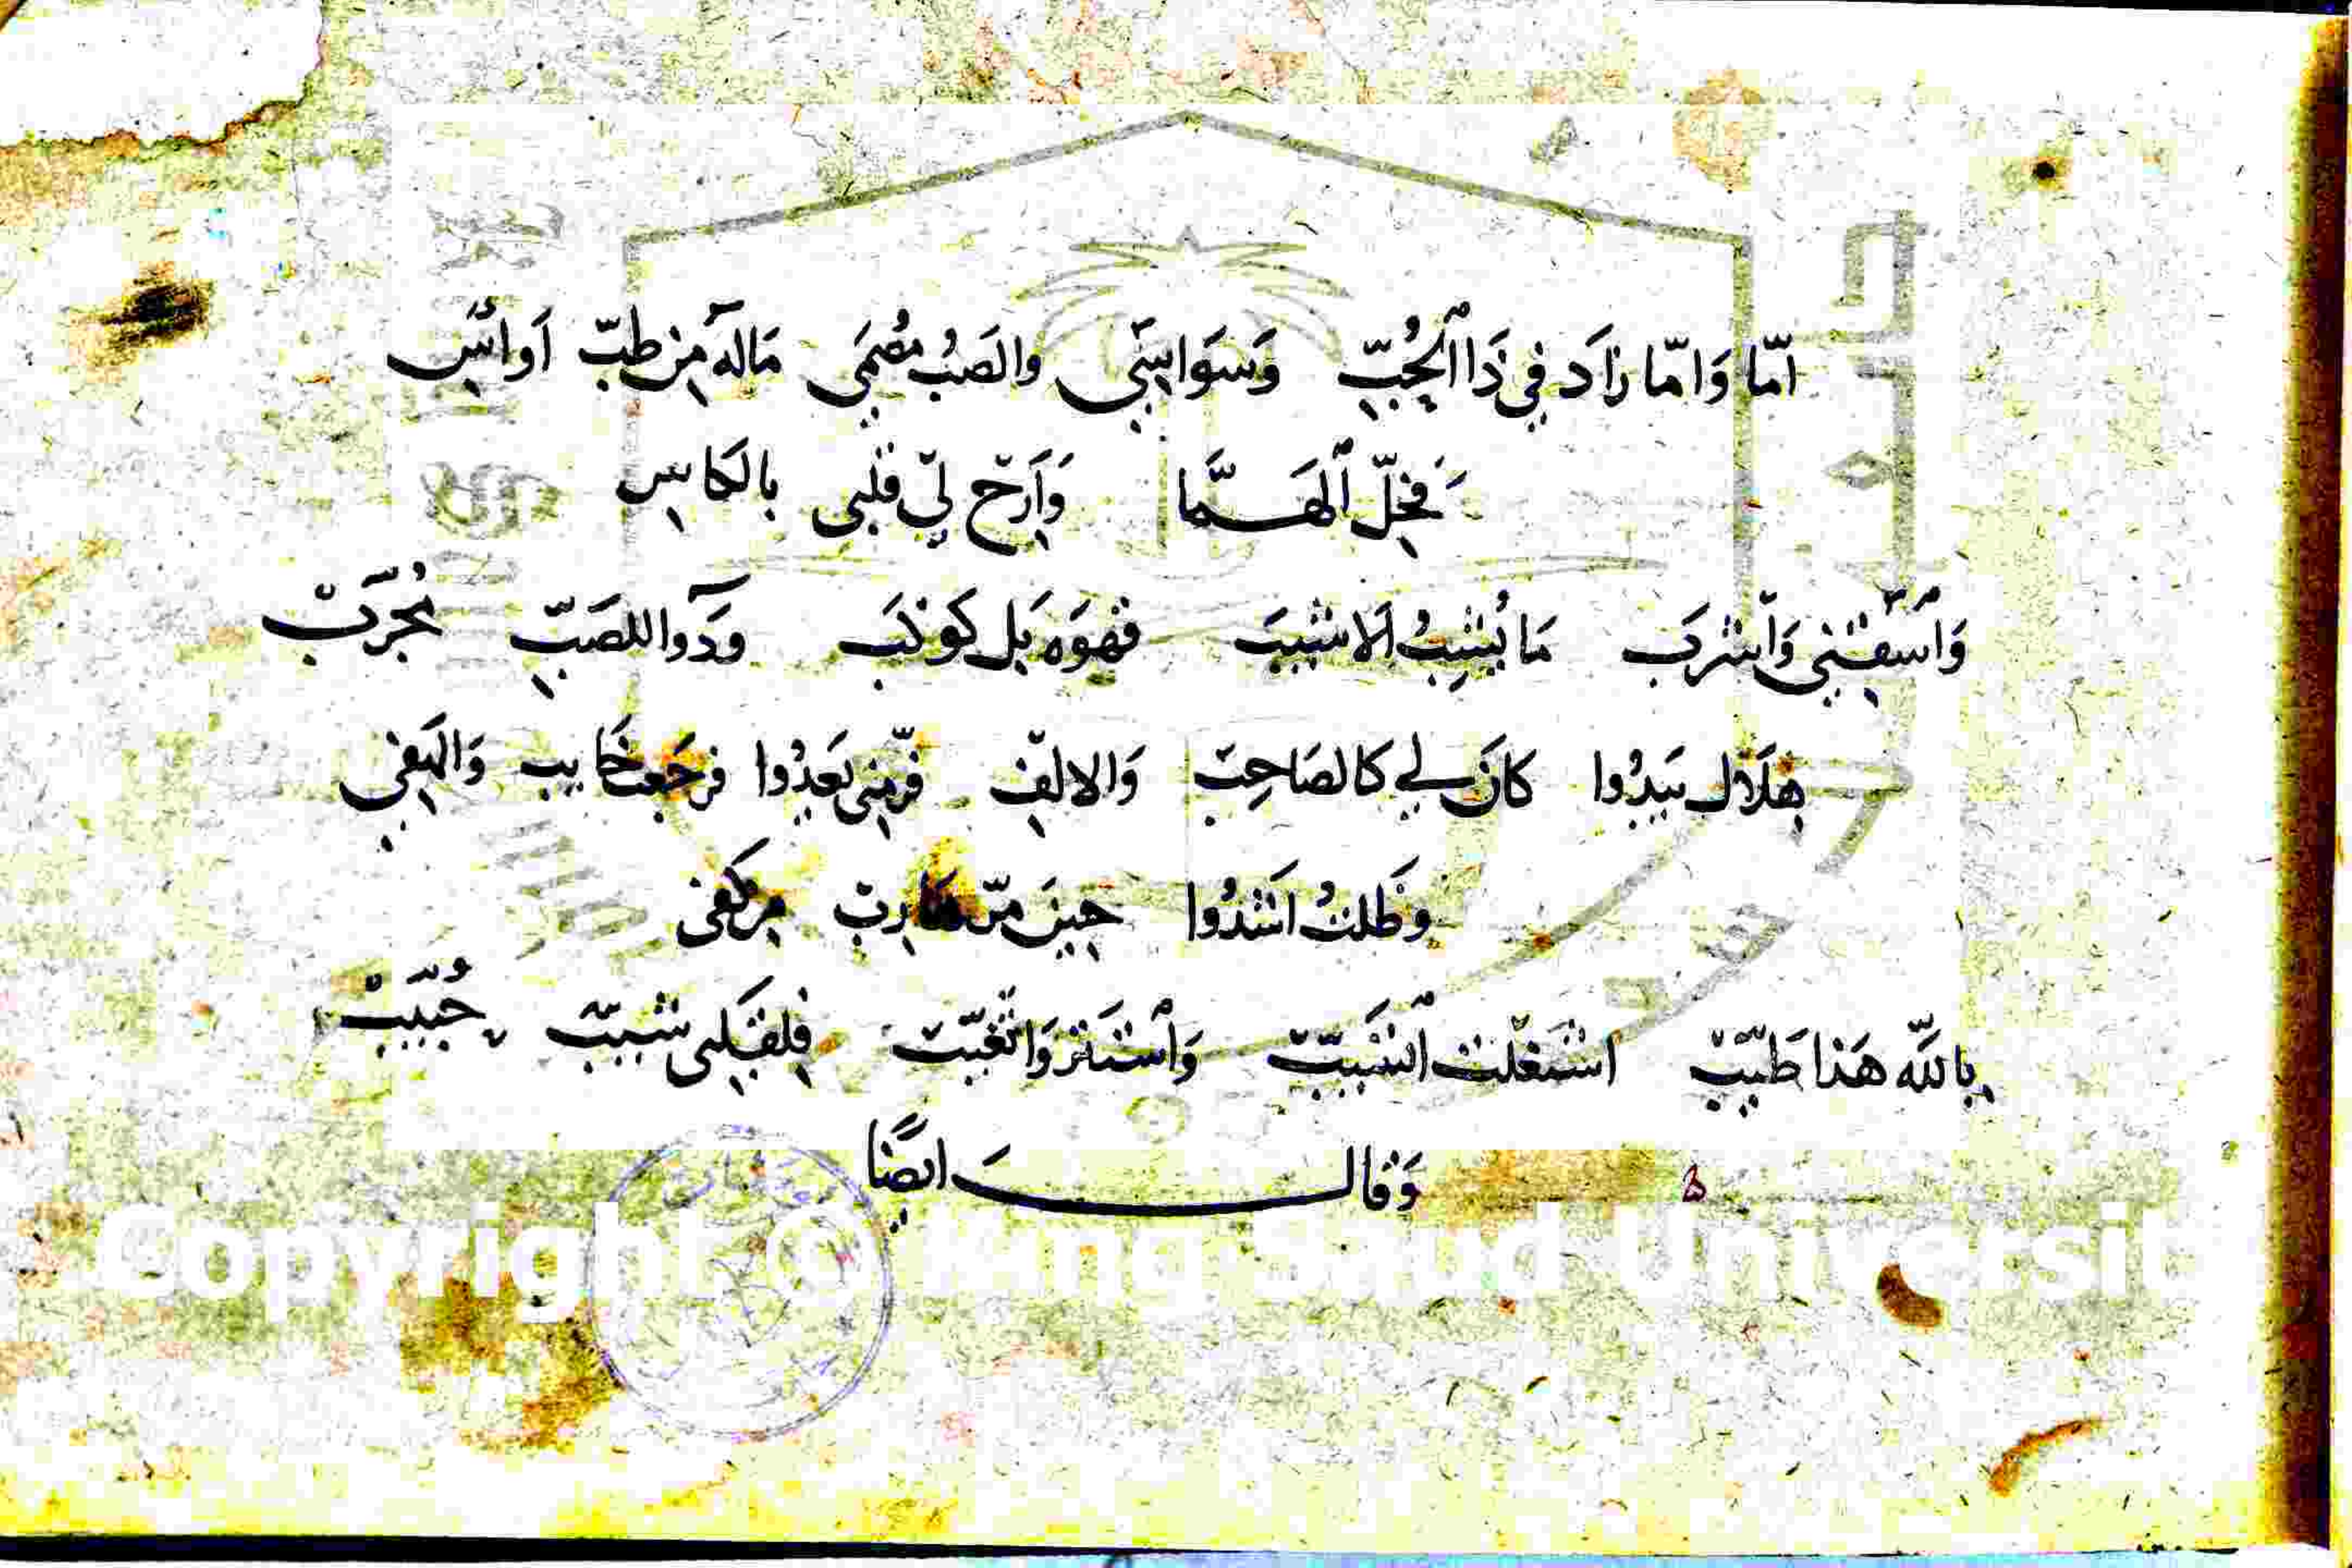 امّا وَامّا زاَد في ذَا الحُبِّ وَسوَاسِي والصَبُ مُضمَى مَالهَ مِن طبّ اَواسِ
فَخِلّ اَلهَمَّا وَاَرِح لي قلبى بالكَاسِ
وَاَسقِني وَاَشرَب مَا يُشِيبُ اَلاشيَب قهوَه بَل كَوكَب ودَوآ للصَبِّ مُجَرَّبْ
هِلَال يَبدُوا كانَ لي كالصَاحِبْ وَالالفِ فرّ مِنى يَعدُوا فرجَعت خَايب وَالهَفي
وظَلتُ اشدُوا حِينَ مَرّ هَارِبْ مِن كفى
بِاللّه هَذا طَيّبْ اشتَعَلت الشَيبَتّ وَاَستَتر وَاتغَيّبْ فلِقَلبِى شيّبْ حُبَيِّبْ
وَقال ايضًا
Copyright © King Saud Universit